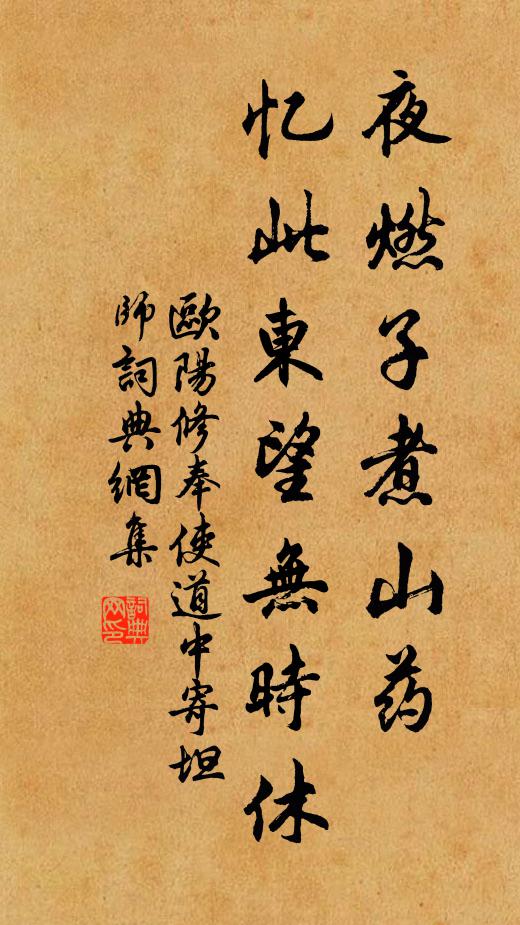 夜燃子煮山药
忆此東望無時休
歐陽修奉使道中寄坦
師詞典網集
詞典
网印